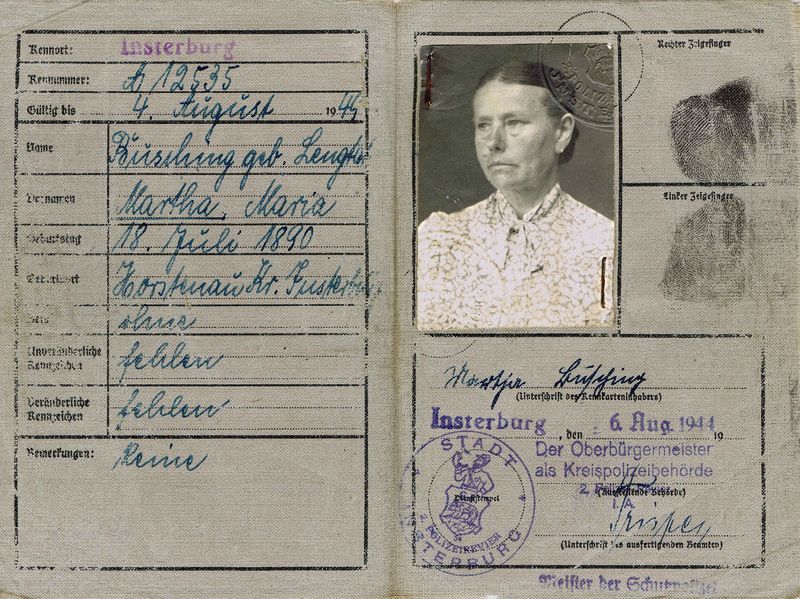 Kennort: Insterburg
Kennummer: A 12535
Gültig bis 4. August 1949
Name Büsching geb.
Vornamen Martha, Maria
Geburtstag 18. Juli 1890
Geburtsort Horstenau Kr. Insterburg
Beruf ohne
Unveränderliche Kennzeichen fehlen
Veränderliche Kennzeichen fehlen
Bemerkungen: Keine
Rechter Zeigefinger
Linker Zeigefinger
Martha Büsching
(Unterschrift des Kennkarteninhabers)
Insterburg, den 6. Aug. 1944 19
Der Oberbürgermeister
als Kreispolizeibehörde
2. Polizei
(Ausfertigende Behörde)
I.A
(Unterschrift des ausfertigenden Beamten)
Meister der Schutzpolizei
STADT
INSTERBURG
2. POLIZEIREVIER
Dienststempel